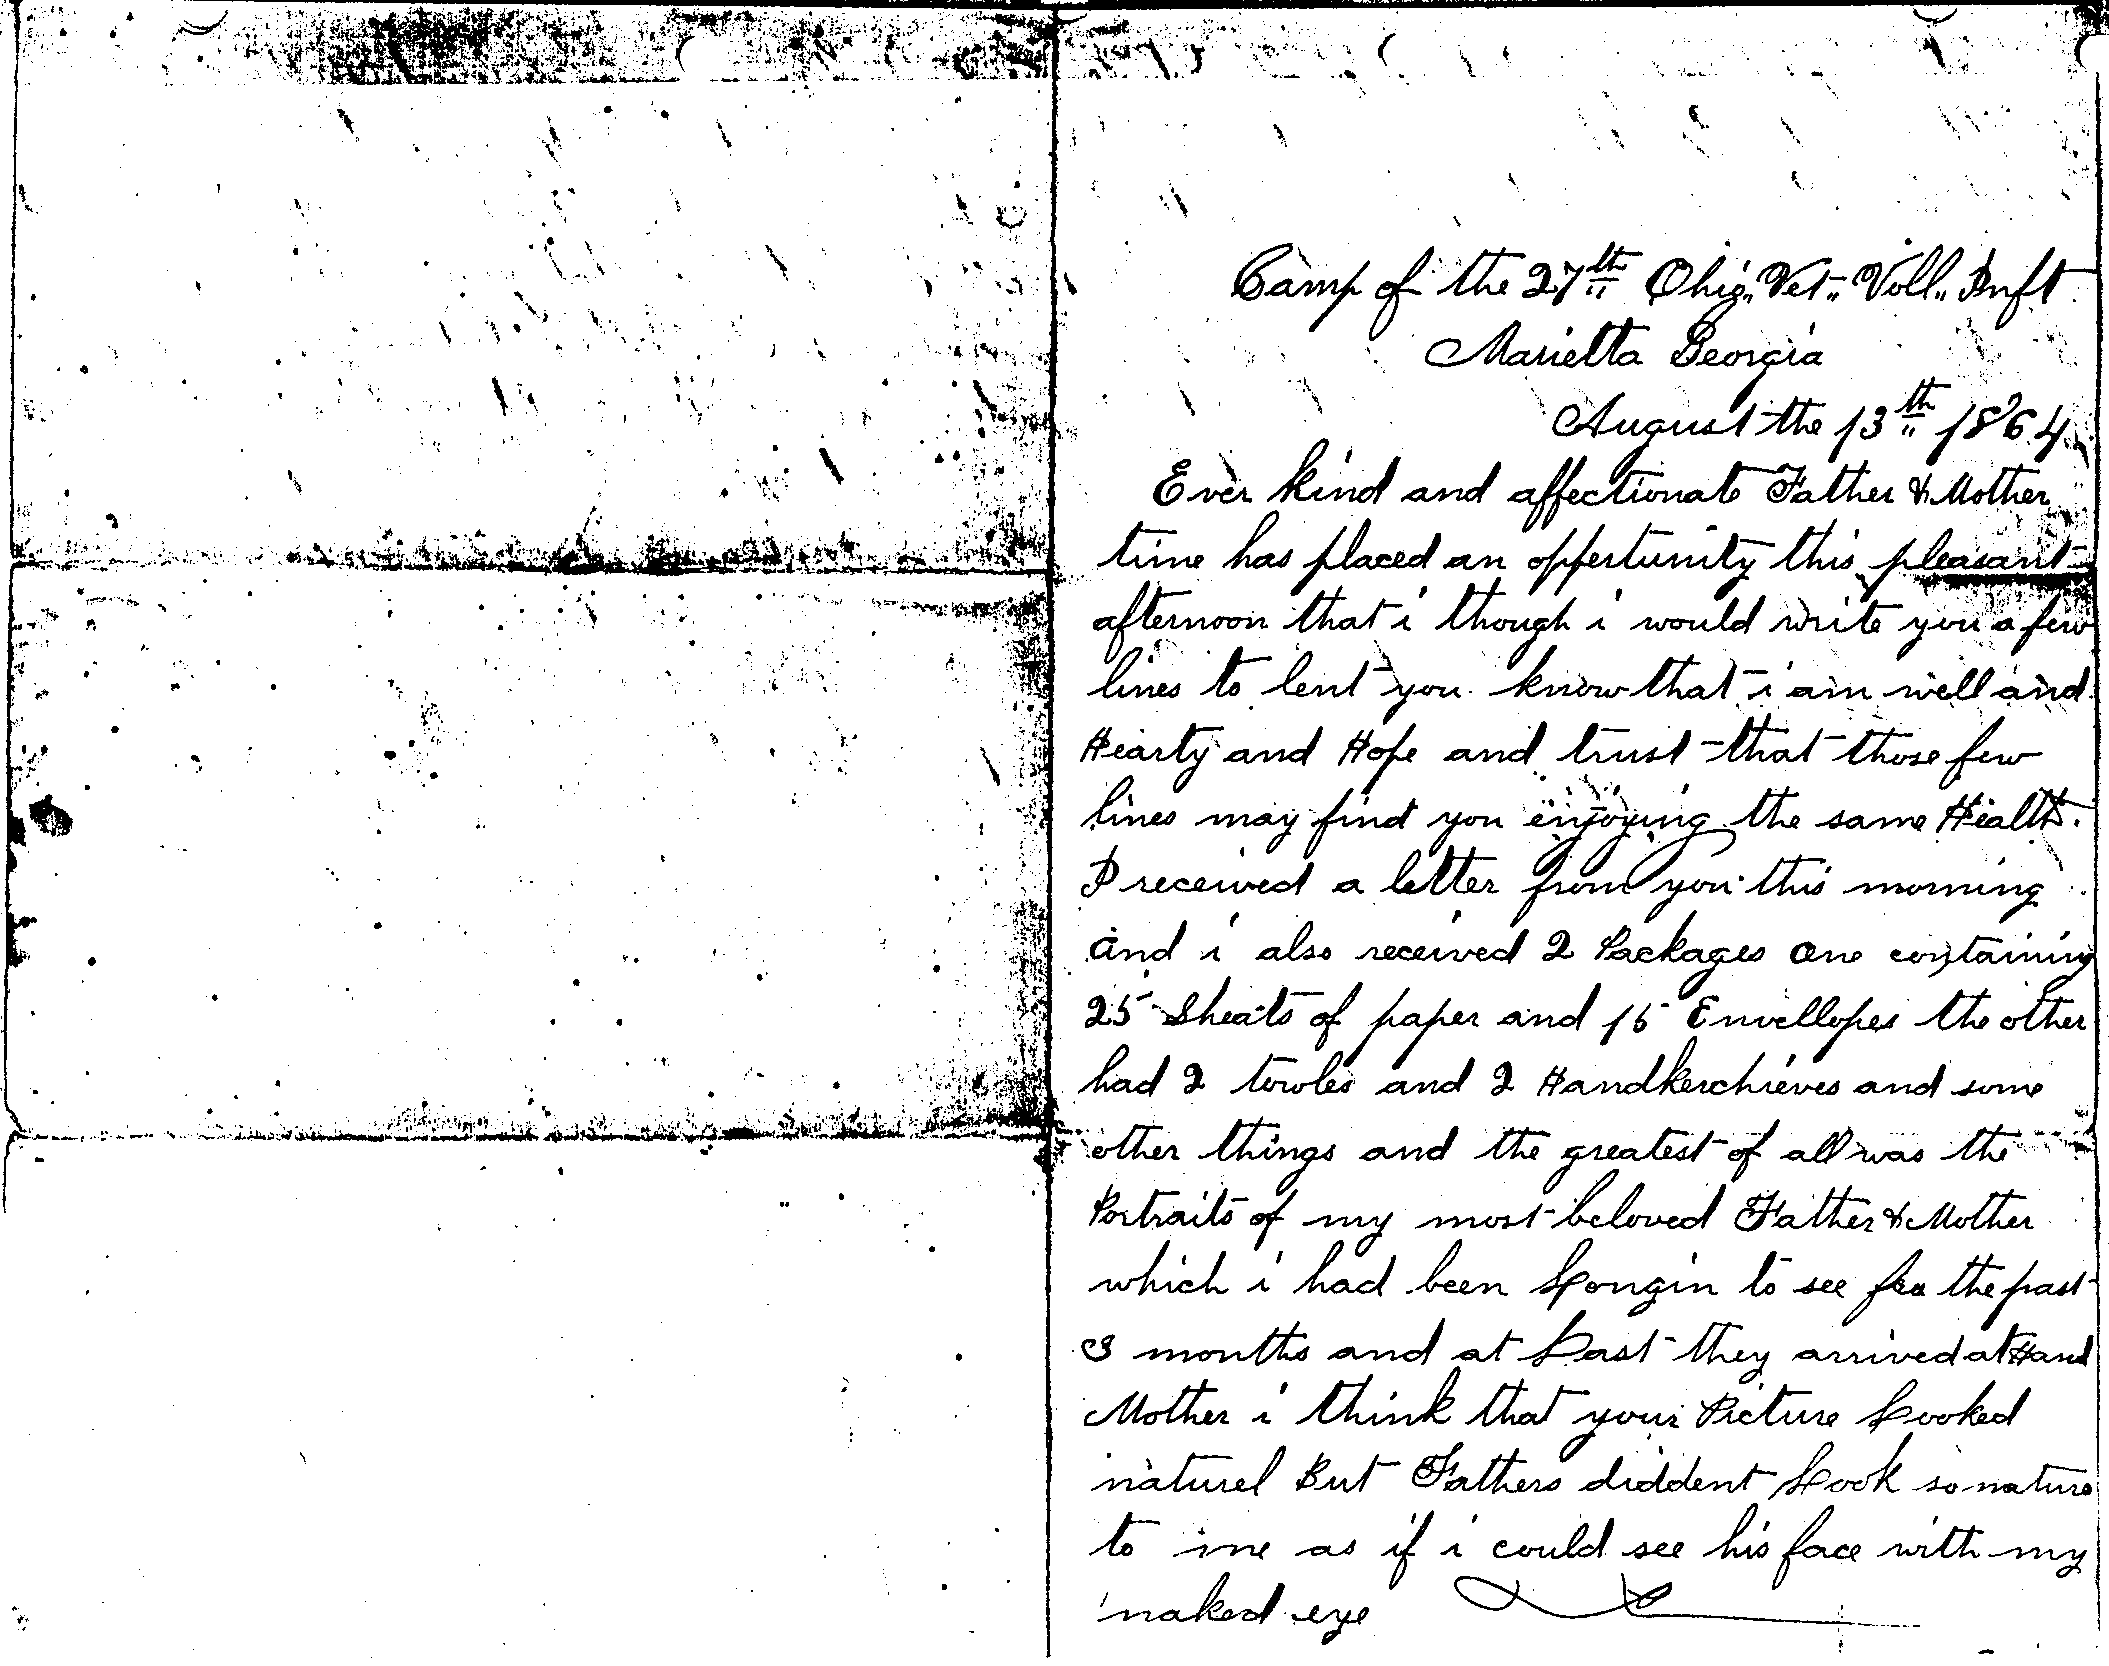 Camp of the 27th Ohio,, Vet,, Voll,, Inft
Marietta Georgia
August the 13th 1864
Ever kind and affectionate Father & Mother
time has placed an oppertunity this pleasant
afternoon that i though i would write you a few
lines to lent you know that i am well and
Hearty and Hope and trust that those few
lines may find you enjoying the same Health.
I received a letter from you this morning
and i also received 2 Packages one containing
25 Sheats of paper and 15 Envellopes the other
had 2 towles and 2 Handkerchieves and some
other things and the greatest of all was the
Portraits of my most beloved Father & Mother
which i had been Longin to see for the past
3 months and at Last they arrived at Hand
Mother i think that your Picture Looked
naturel But Fathers diddent Look so nature
to me as if i could see his face with my
naked eye